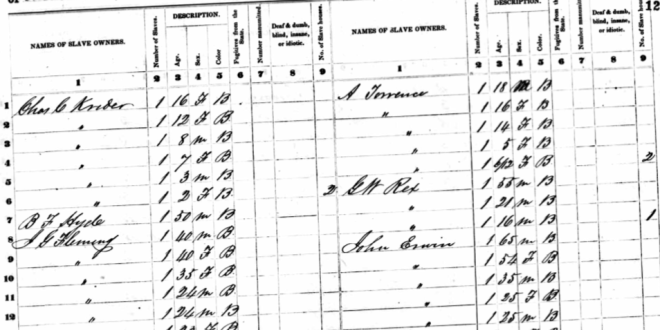 12
DESCRIPTION. DESCRIPTION.
NAMES OF SLAVE OWNERS. Number of Slaves. Age. Sex. Color Fugitives from the State. Number manumitted. Deaf & dumb, blind, insane, or idiotic. No. of Slave houses. NAMES OF SLAVE OWNERS. Number of Slaves. Age. Sex. Color Fugitives from the State. Number manumitted. Deaf & dumb, blind, insane, or idiotic. No. of Slave houses.
1 2 3 4 5 6 7 8 9 1 2 3 4 5 6 7 8 9
1 Chas C Krider 1 16 F B A Torrence 1 18 M B
2 " 1 12 F B " 1 16 F B
3 " 1 8 m B " 1 14 F B
4 " 1 7 F B " 1 5 F B
5 " 1 3 m B " 1 F B 2
6 " 1 2 F B 2 G W Rex 1 55 m B
7 B F Hyde 1 50 m B " 1 21 m B
8 J G Fleming 1 40 m B " 1 16 m B 1
9 " 1 40 F B John Erwin 1 65 m B
10 " 1 35 F B " 1 54 F B
11 " 1 24 m B " 1 35 m B
12 " 1 24 m B " 1 25 F B
" 1 25 m B